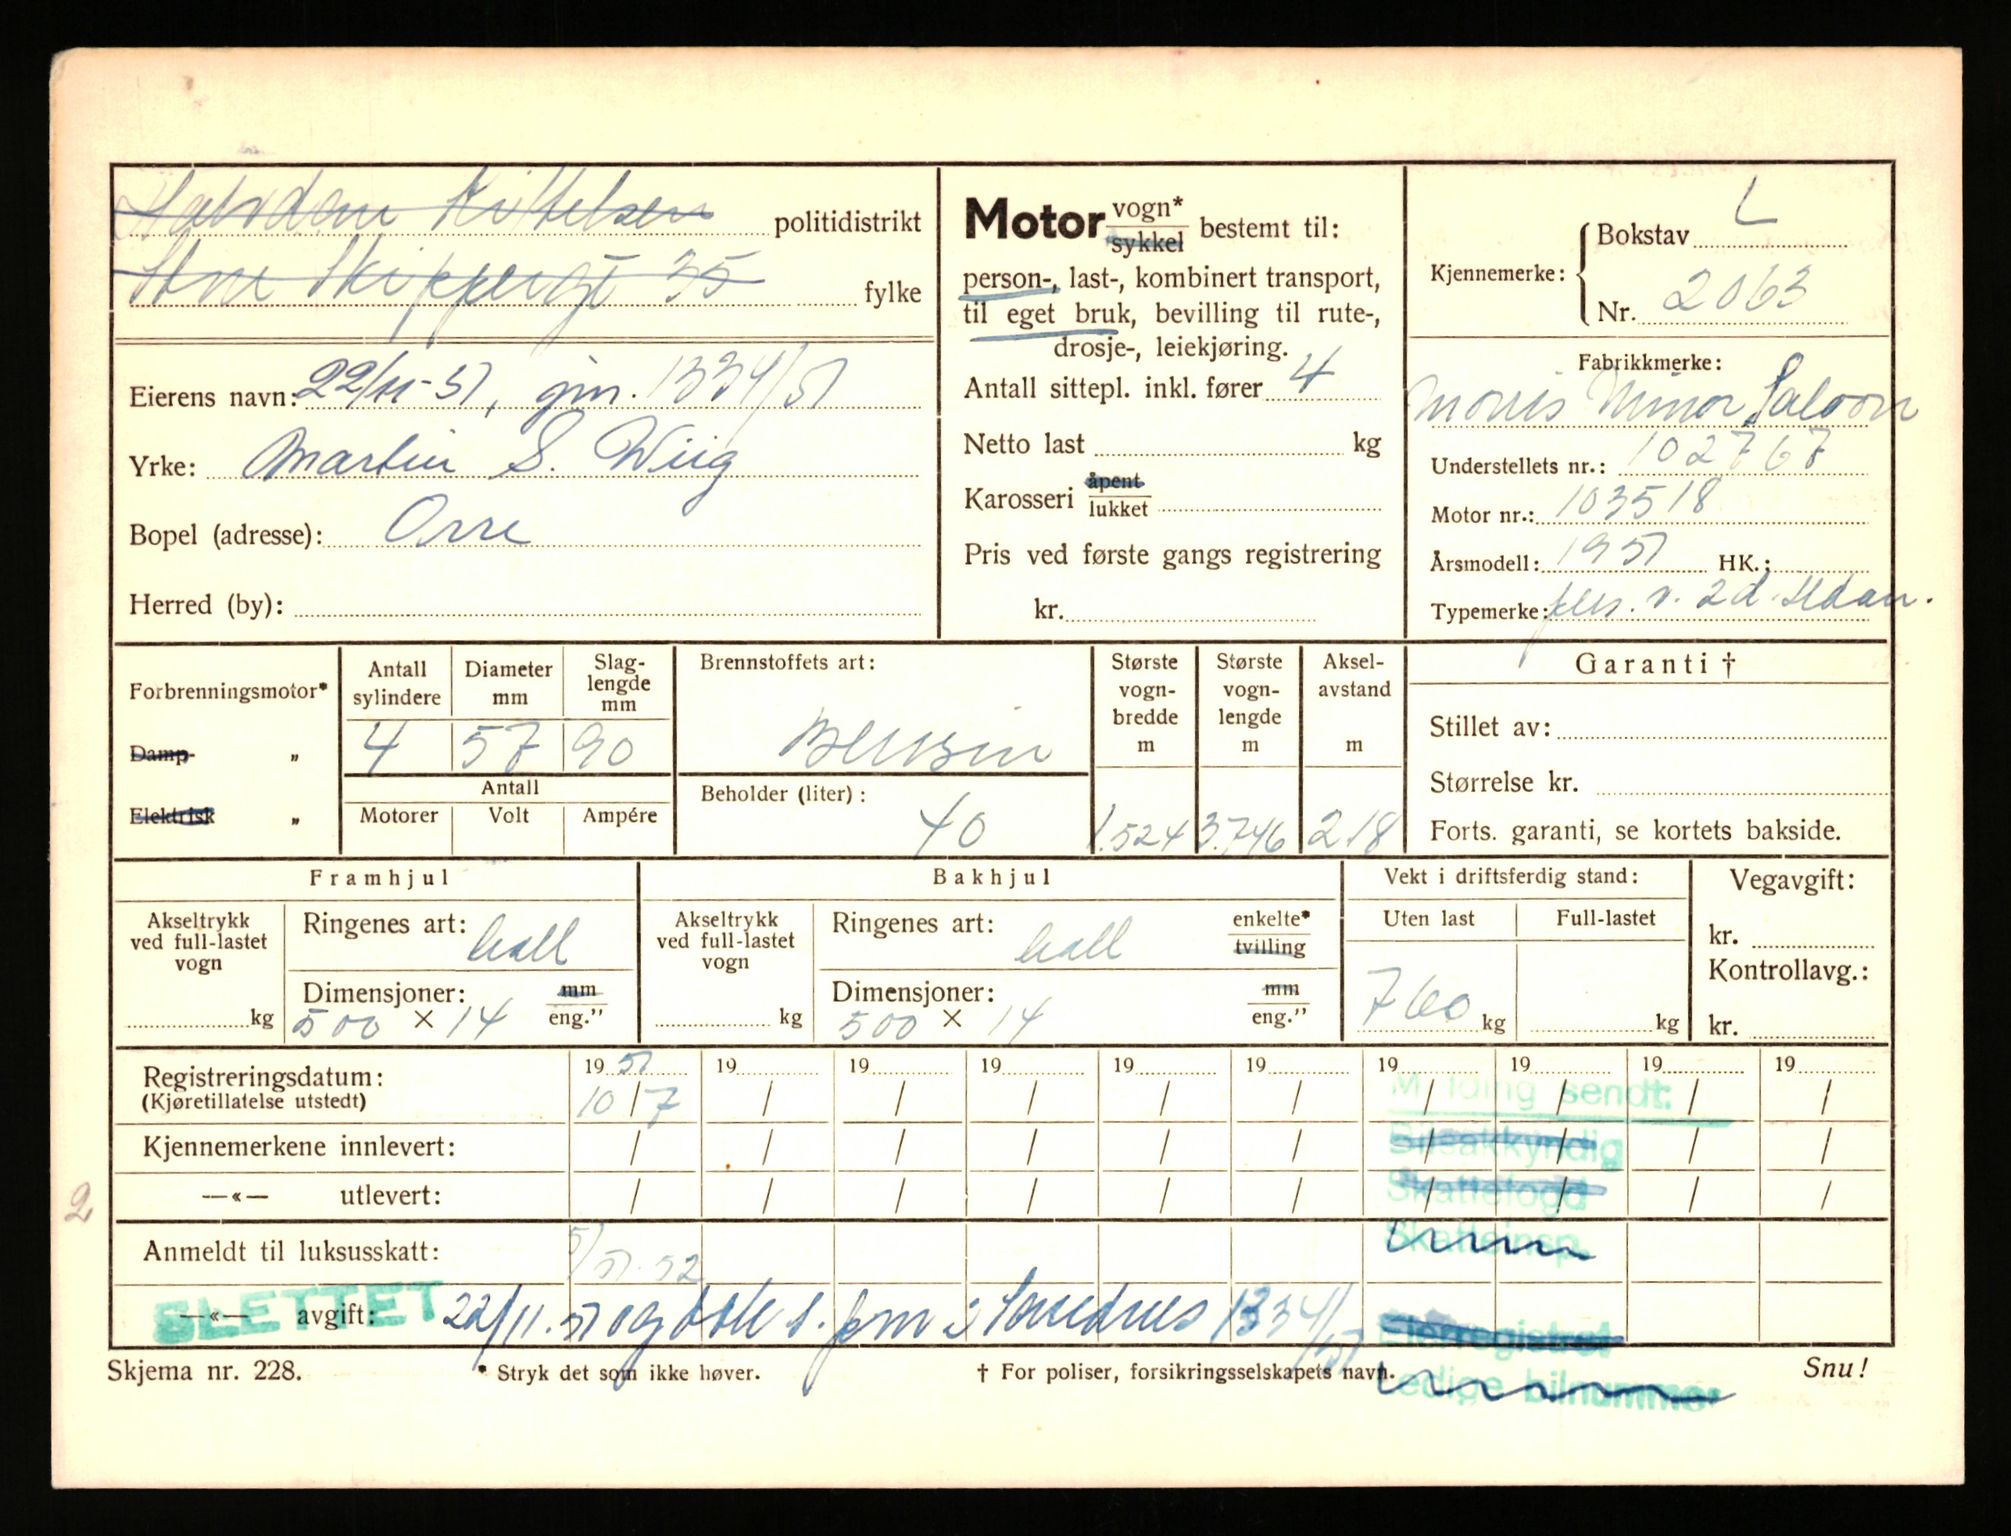 Halvdan Kittelsen politidistrikt
Store Skippergt 35 fylke
Eierens navn: 22/11-51, gjm. 1334/51
Yrke: Martin S. Wiig
Bopel (adresse): Orre
Herred (by):
Motor vogn* sykkel bestemt til:
person-, last-, kombinert transport,
til eget bruk, bevilling til rute-,
drosje-, leiekjøring.
Antall sittepl. inkl. fører 4
Netto last kg
Karosseri åpent lukket
Pris ved første gangs registrering
kr.
Kjennemerke: Bokstav L
Nr. 2063
Fabrikkmerke:
Morris Minor Saloon
Understellets nr.: 102767
Motor nr.: 103518
Årsmodell: 1951 HK.:
Typemerke: pers. v. 2d. sedan.
Forbrenningsmotor*
Damp „
Elektrisk „
Antall sylindere 4
Diameter mm 57
Slag-lengde mm 90
Antall
Motorer Volt Ampére
Brennstoffets art:
Bensin
Beholder (liter):
40
Største vogn-bredde m 1.524
Største vogn-lengde m 3.746
Aksel-avstand m 2.18
Garanti †
Stillet av:
Størrelse kr.
Forts. garanti, se kortets bakside.
Framhjul
Akseltrykk ved full-lastet vogn
kg
Ringenes art: luft
Dimensjoner: mm
500 × 14 eng."
Bakhjul
Akseltrykk ved full-lastet vogn
kg
Ringenes art: luft enkelte* tvilling
Dimensjoner: mm
500 × 14 eng."
Vekt i driftsferdig stand:
Uten last Full-lastet
760 kg kg
Vegavgift:
kr.
Kontrollavg.:
kr.
Registreringsdatum: 19 51 19 19 19 19 19 19 19 19 19
(Kjøretillatelse utstedt) 10/7 / / / / / / / / /
Melding sendt:
Kjennemerkene innlevert: / / / / / / / / / /
Bilsakkyndig
—«— utlevert: / / / / / / / / / /
Skattefogd
2
Anmeldt til luksusskatt: 5/51-52
Skatteinsp.
SLETTET
—«— avgift: 22/11.51 i Sandnes 1334/51
Eierregistret
Ledige bilnummer
Skjema nr. 228. * Stryk det som ikke høver. † For poliser, forsikringsselskapets navn. Snu!